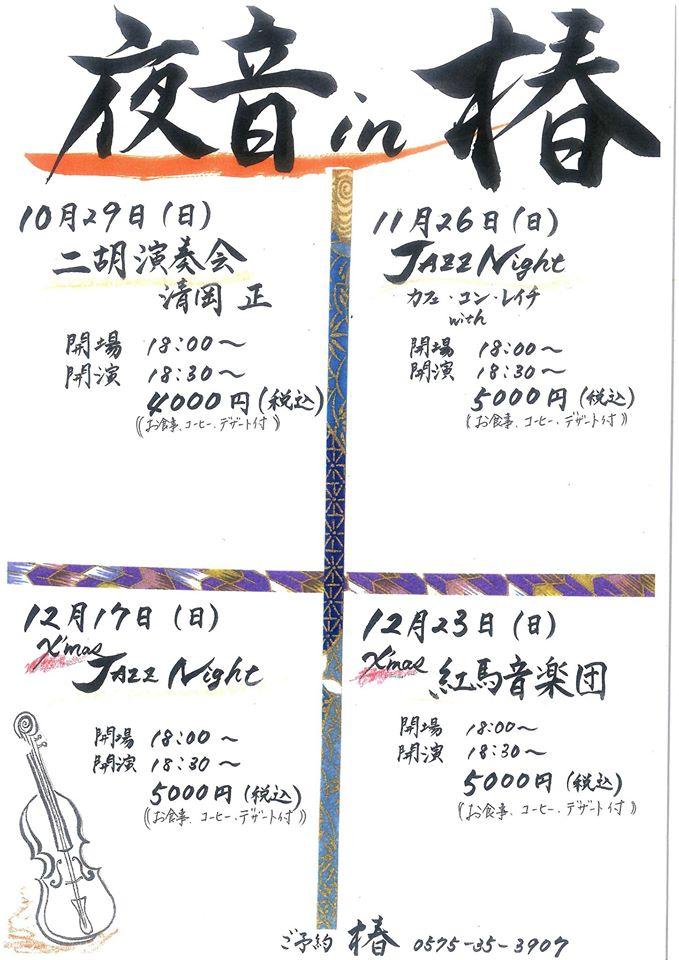 夜音 in 椿
10月29日(日)
二胡演奏会
清岡 正
開場 18:00~
開演 18:30~
4000円(税込)
(お食事、コーヒー、デザート付)
11月26日(日)
JAZZ Night
カフェ・コン・レイチ
with
開場 18:00~
開演 18:30~
5000円(税込)
(お食事、コーヒー、デザート付)
12月17日(日)
X'mas
JAZZ Night
開場 18:00~
開演 18:30~
5000円(税込)
(お食事、コーヒー、デザート付)
12月23日(日)
X'mas
紅馬音楽団
開場 18:00~
開演 18:30~
5000円(税込)
(お食事、コーヒー、デザート付)
ご予約 椿 0575-35-3907